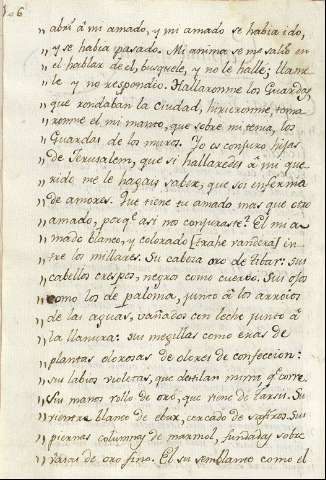 106
„ abrí â mi amado, y mi amado se habia ido,
„ y se habia pasado. Mi anima se me salió en
„ el hablar de el, busquele, y no le hallé; llamé
„ le y no respondió. Hallaronme los Guardas,
„ que rondaban la ciudad, hirieronme, toma
„ ronme el mi manto, que sobre mi tenia, los
„ Guardas de los muros. Yo os conjuro hijas
„ de Jerusalem, que si hallaredes â mi que
„ rido me le hagais saber, que soi enferma
„ de amores. Que tiene tu amado mas que otro
„ amado, porqᵉ asi nos conjuraste? El mi a
„ mado blanco, y colorado [trahe vandera] en
„ tre los millares. Su cabeza oro de tibar: sus
„ cabellos crespos, negros como cuervo. Sus ojos
„ como los de paloma, junto â los arroios
„ de las aguas, vañados con leche junto â
„ la llanura: sus megillas como eras de
„ plantas olorosas de olores de confeccion:
„ sus labios violetas, que destilan mirra, qᵉ corre.
„ Sus manos rollo de oró, que viene de tarsis. Su
„ vientre blanco de ebur, cercado de safiros. Sus
„ piernas columnas de marmol, fundadas sobre
„ vasas de oro fino. El su semblante como el